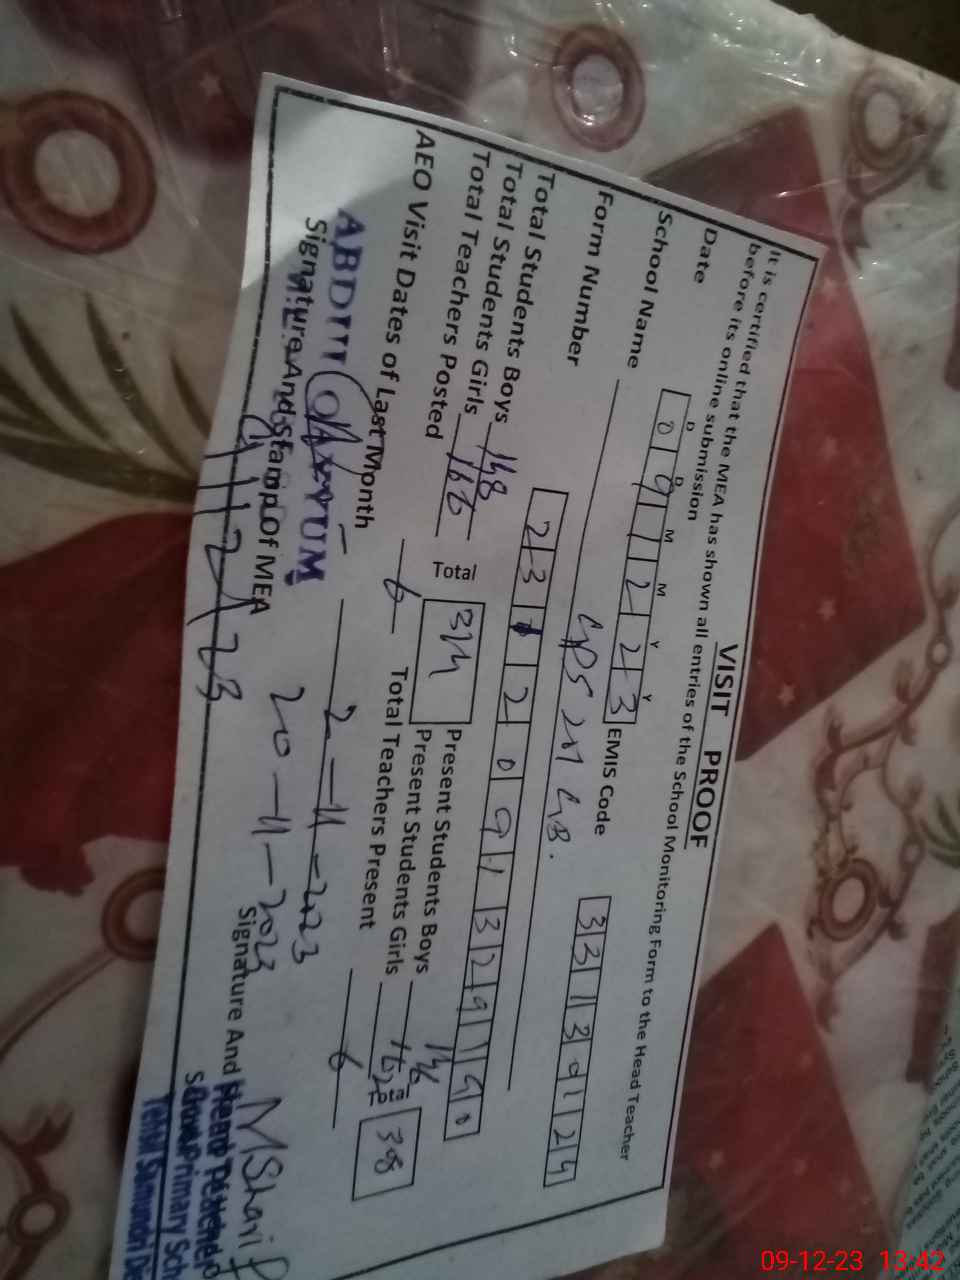 VISIT PROOF
It is certified that the MEA has shown all entries of the School Monitoring Form to the Head Teacher
before its online submission
D D M M Y Y
Date 0 9 1 2 2 3 EMIS Code 3 3 1 3 0
School Name GPS 251 GB.
Form Number 2 3 1 2 0 9 1 3 2 9
Total Students Boys 148 Present Students Boys 146
Total Students Girls 166 Total 314 Present Students Girls 308
Total Teachers Posted 6 Total Teachers Present 6
AEO Visit Dates of Last Month 2-11-2023
20-11-2023
ABDUL QAYYUM
Signature And Stamp of MEA Signature And
9/12/23 M Sharif
Head Teacher
Govt Primary Sch
Teh Samundri Di
09-12-23 13:42